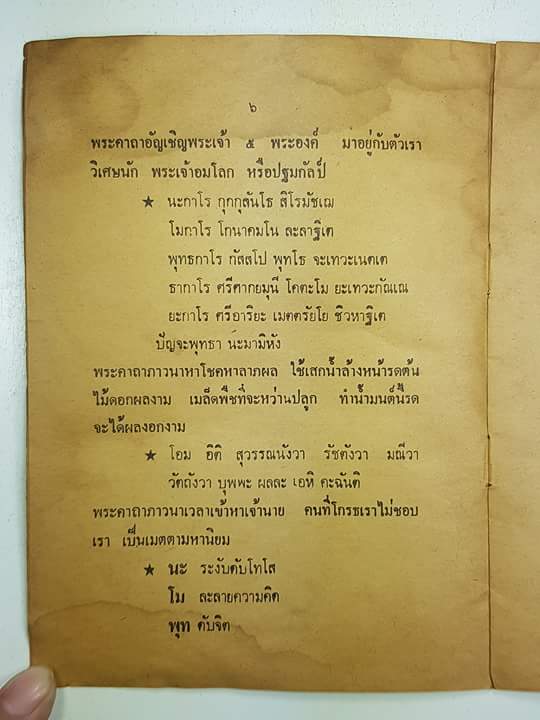 ๖
พระคาถาอัญเชิญพระเจ้า ๕ พระองค์ มาอยู่กับตัวเรา
วิเศษนัก พระเจ้าอมโลก หรือปฐมกัลป์
★ นะกาโร กุกกุสันโธ สิโรมัชเฌ
โมกาโร โกนาคมโน ละลาฐิเต
พุทธกาโร กัสสโป พุทโธ จะเทวะเนตเต
ธากาโร ศรีศากยมุนี โคตะโม ยะเทวะกัณเณ
ยะกาโร ศรีอาริยะ เมตตรัยโย ชิวหาฐิเต
ปัญจะพุทธา นะมามิหัง
พระคาถาภาวนาหาโชคหาลาภผล ใช้เสกน้ำล้างหน้ารดต้น
ไม้ดอกผลงาม เมล็ดพืชที่จะหว่านปลูก ทำน้ำมนต์นี้รด
จะได้ผลงอกงาม
★ โอม อิติ สุวรรณนังวา รัชตังวา มณีวา
วัตถังวา บุพพะ ผลละ เอหิ คะฉันติ
พระคาถาภาวนาเวลาเข้าหาเจ้านาย คนที่โกรธเราไม่ชอบ
เรา เป็นเมตตามหานิยม
★ นะ ระงับดับโทโส
โม ละลายความคิด
พุท ดับจิต